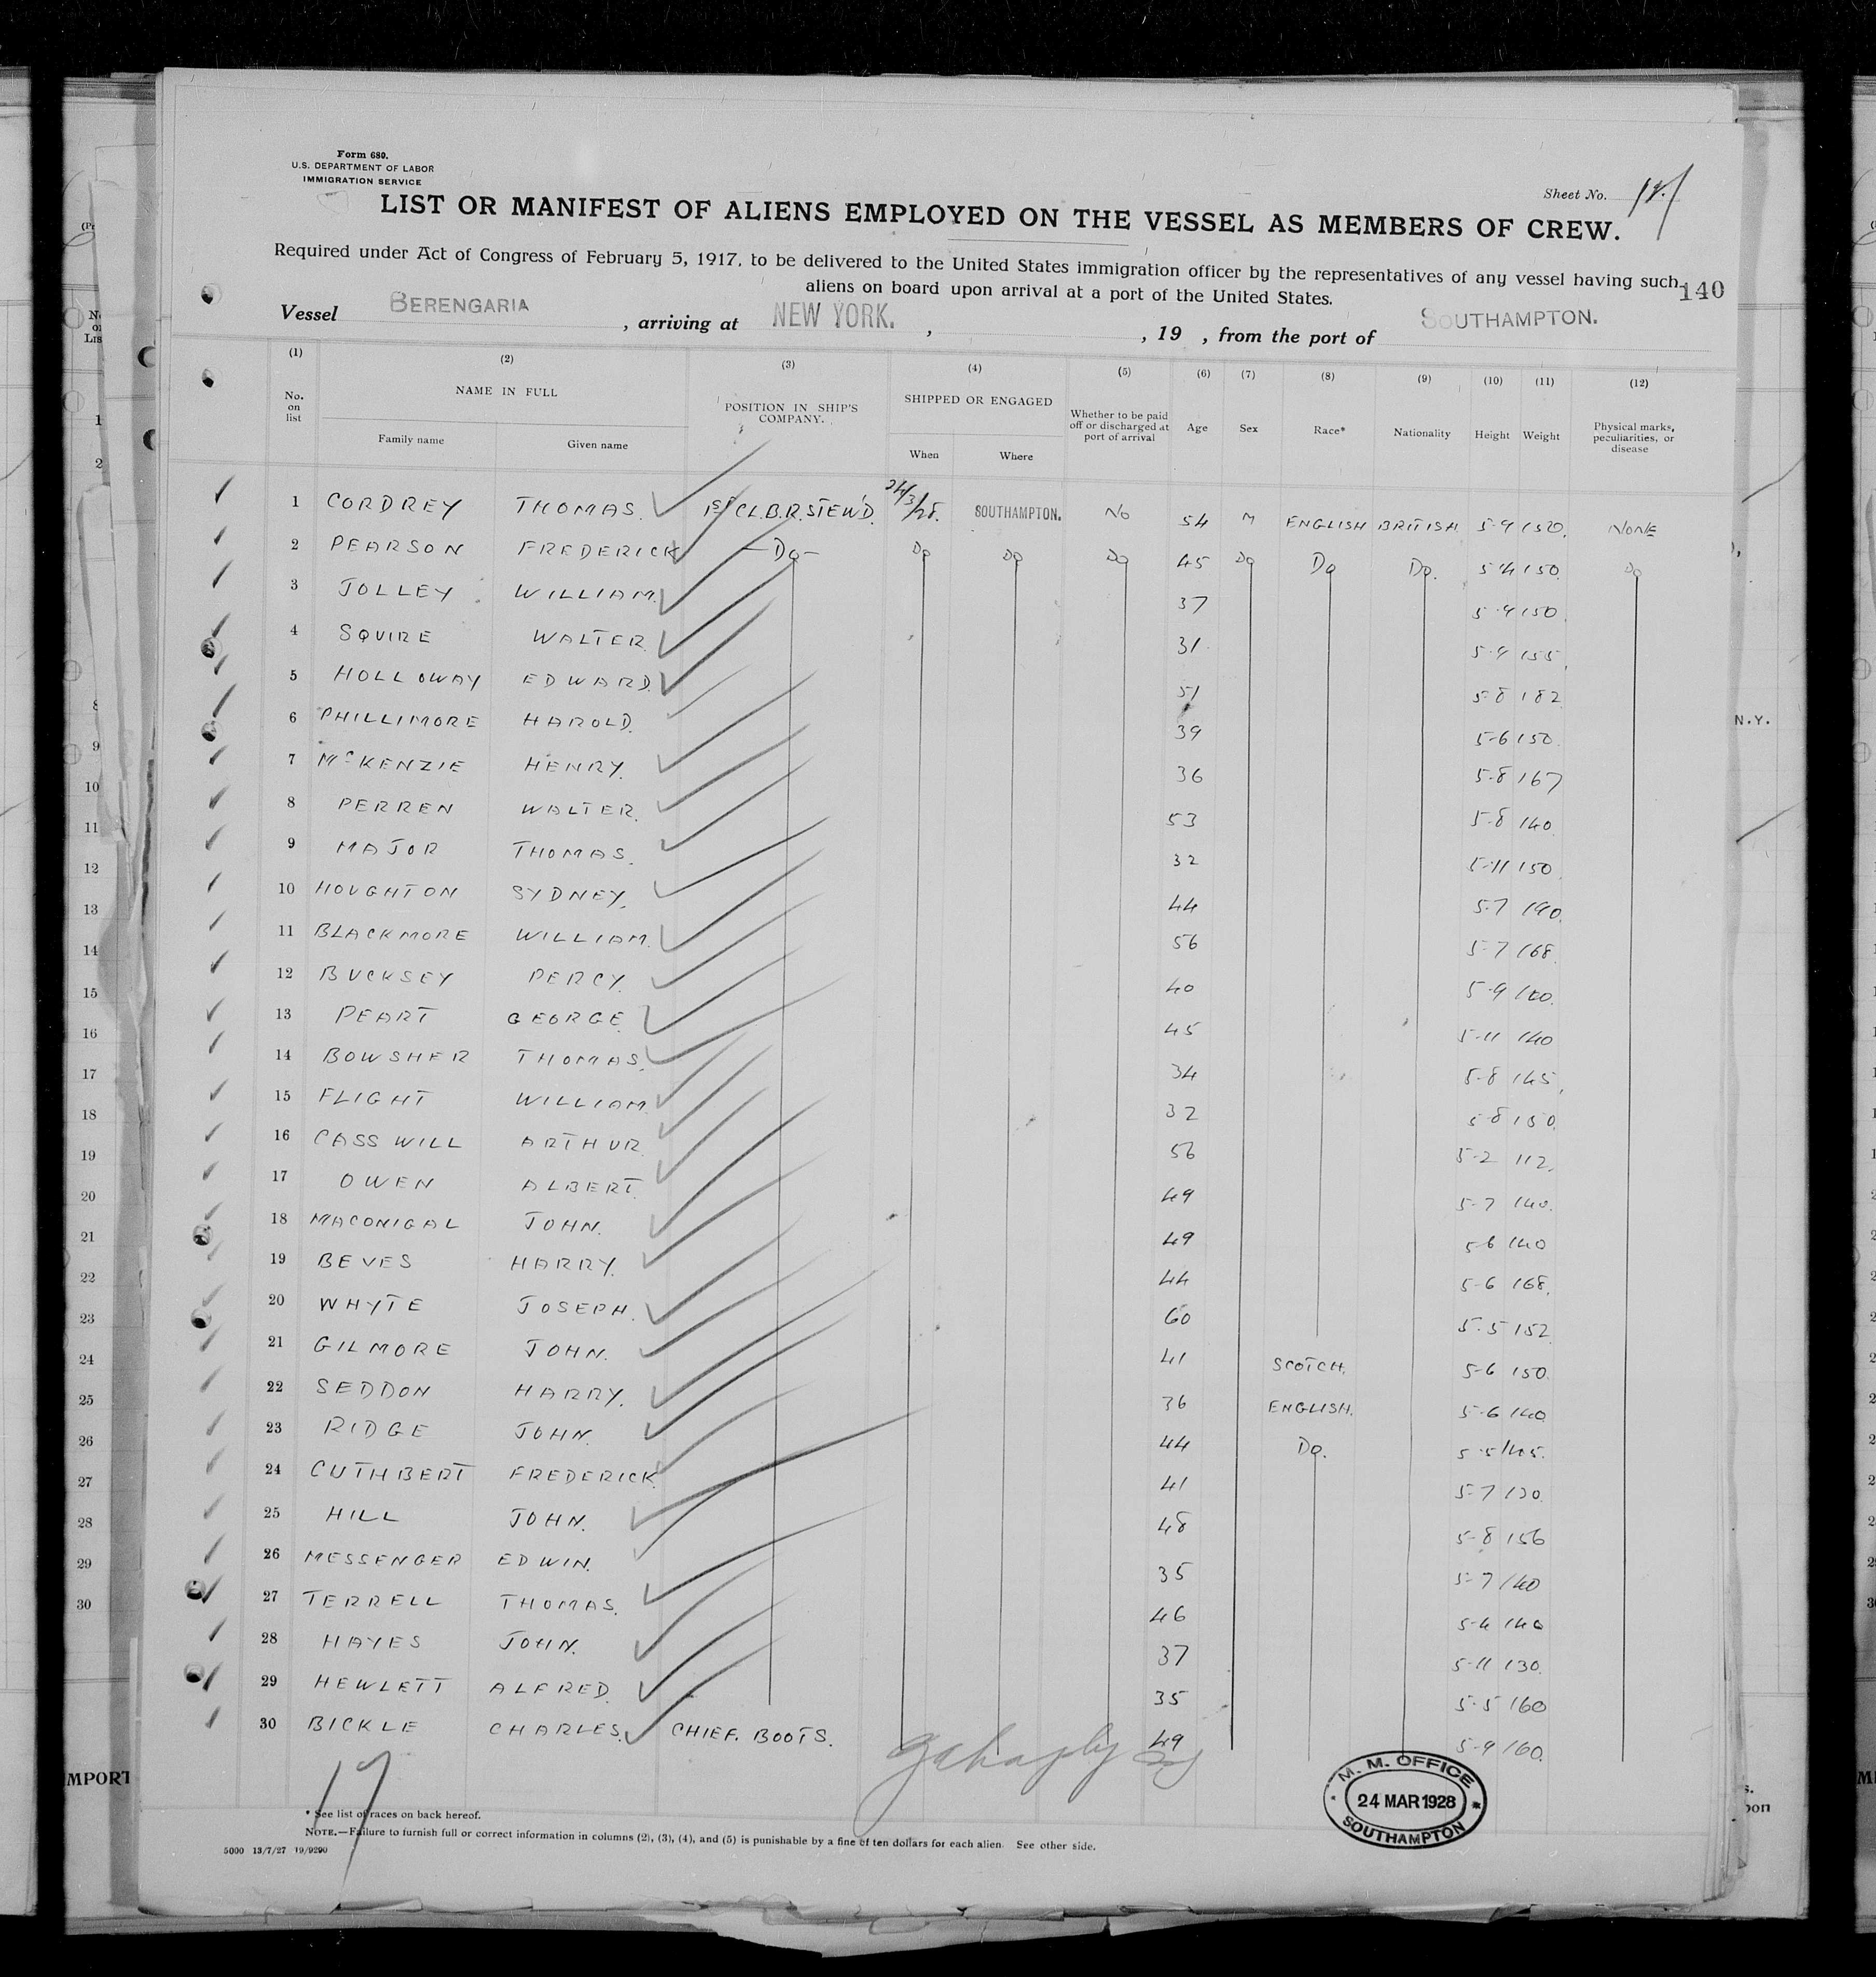 Form 680.
U.S. DEPARTMENT OF LABOR
IMMIGRATION SERVICE
Sheet No.
LIST OR MANIFEST OF ALIENS EMPLOYED ON THE VESSEL AS MEMBERS OF CREW.
Required under Act of Congress of February 5, 1917, to be delivered to the United States immigration officer by the representatives of any vessel having such
aliens on board upon arrival at a port of the United States.
140
Vessel BERENGARIA , arriving at NEW YORK. , , 19 , from the port of SOUTHAMPTON.
(1) (2) (3) (4) (5) (6) (7) (8) (9) (10) (11) (12)
No. on list NAME IN FULL Family name Given name POSITION IN SHIP'S COMPANY. SHIPPED OR ENGAGED When Where Whether to be paid off or discharged at port of arrival Age Sex Race* Nationality Height Weight Physical marks, peculiarities, or disease
1 CORDREY THOMAS. 1st CL.B.R.STEW'D. 24/3/28. SOUTHAMPTON. NO 54 M ENGLISH BRITISH 5-9 150. NONE
2 PEARSON FREDERICK —Do— Do Do Do 45 Do Do Do. 5-4 150. Do
3 JOLLEY WILLIAM. 37 5-9 150.
4 SQUIRE WALTER. 31. 5-9 155.
5 HOLLOWAY EDWARD. 51 5-8 182
6 PHILLIMORE HAROLD. 39 5-6 150.
7 McKENZIE HENRY. 36 5-8 167
8 PERREN WALTER. 53 5-8 140.
9 MAJOR THOMAS. 32 5-11 150.
10 HOUGHTON SYDNEY. 44 5-7 190.
11 BLACKMORE WILLIAM. 56 5-7 168.
12 BUCKSEY PERCY. 40 5-9
13 PEART GEORGE. 45 5-11 140
14 BOWSHER THOMAS. 34 5-8 145.
15 FLIGHT WILLIAM. 32 5-8
16 CASSWILL ARTHUR 56 5-2 112.
17 OWEN ALBERT. 49 5-7 140.
18 MACONIGAL JOHN. 49 5-6 140
19 BEVES HARRY. 44 5-6 168.
20 WHYTE JOSEPH. 60 5-5 152.
21 GILMORE JOHN. 41 SCOTCH. 5-6 150.
22 SEDDON HARRY. 36 ENGLISH. 5-6 140.
23 RIDGE JOHN. 44 Do. 5-5
24 CUTHBERT FREDERICK. 41 5-7
25 HILL JOHN. 48 5-8 156
26 MESSENGER EDWIN. 35 5-7 140
27 TERRELL THOMAS. 46 5-4 140
28 HAYES JOHN. 37 5-11 130.
29 HEWLETT ALFRED. 35 5-5 160
30 BICKLE CHARLES. CHIEF. BOOTS. 49 5-9 160.
17
M. M. OFFICE
24 MAR 1928
SOUTHAMPTON
* See list of races on back hereof.
NOTE.—Failure to furnish full or correct information in columns (2), (3), (4), and (5) is punishable by a fine of ten dollars for each alien. See other side.
5000 13/7/27 19/9290
N.Y.